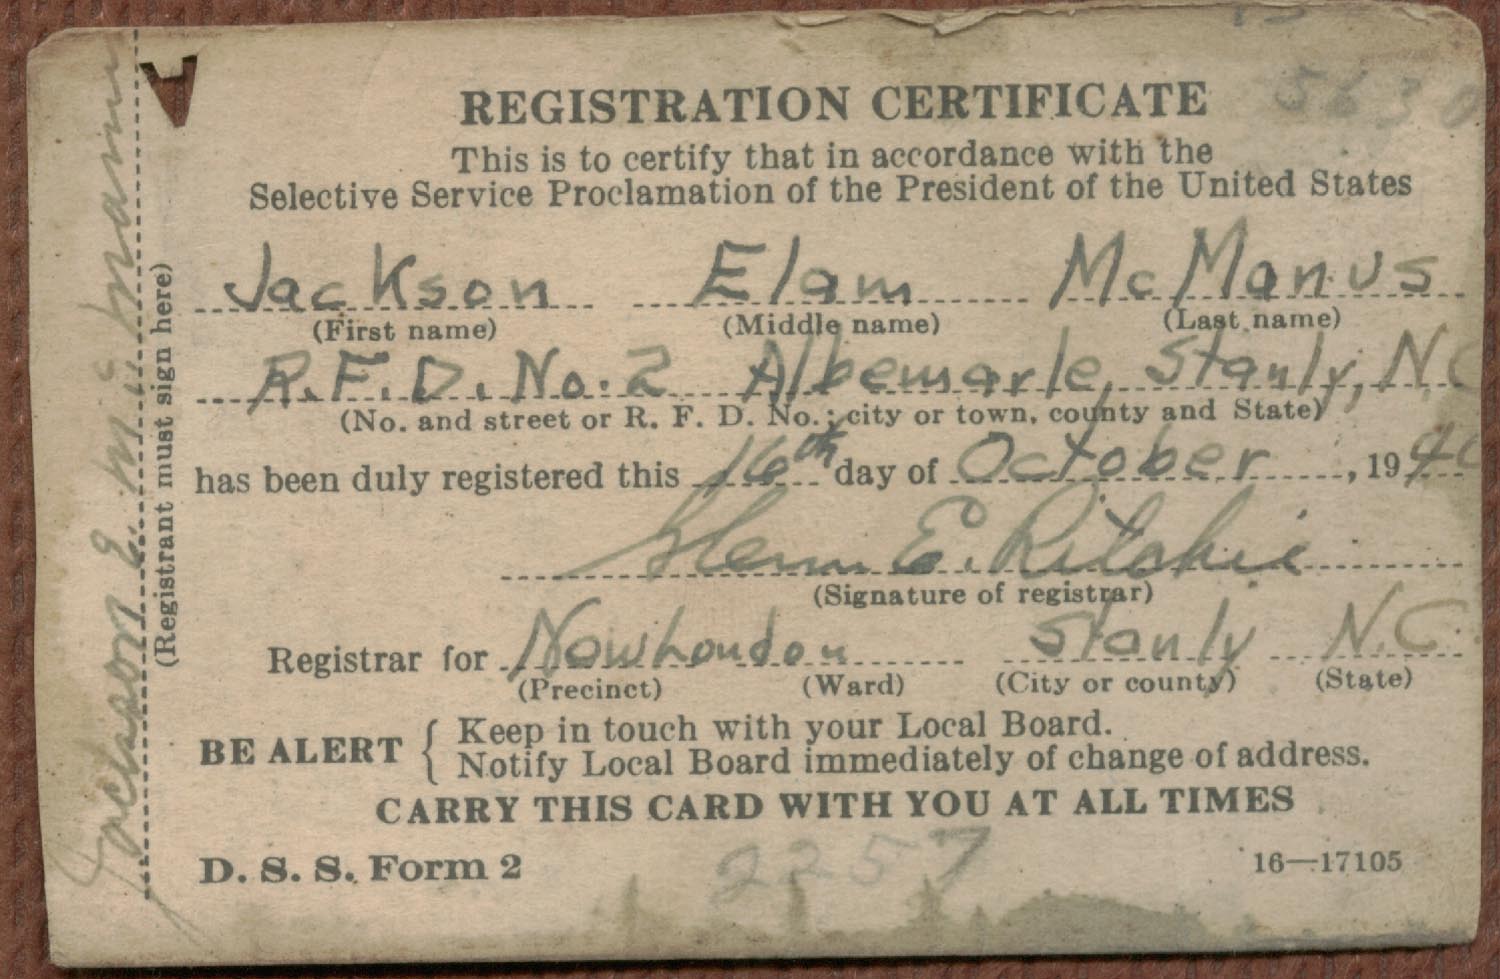 5630
REGISTRATION CERTIFICATE
This is to certify that in accordance with the
Selective Service Proclamation of the President of the United States
Jackson Elam McManus
(First name) (Middle name) (Last name)
R.F.D. No. 2 Albemarle, Stanly, N.C
(No. and street or R. F. D. No.; city or town, county and State)
has been duly registered this 16th day of October, 1940
Glenn E. Ritchie
(Signature of registrar)
Registrar for New London Stanly N.C.
(Precinct) (Ward) (City or county) (State)
BE ALERT { Keep in touch with your Local Board.
Notify Local Board immediately of change of address.
CARRY THIS CARD WITH YOU AT ALL TIMES
D. S. S. Form 2 2257 16—17105
(Registrant must sign here)
Jackson E.